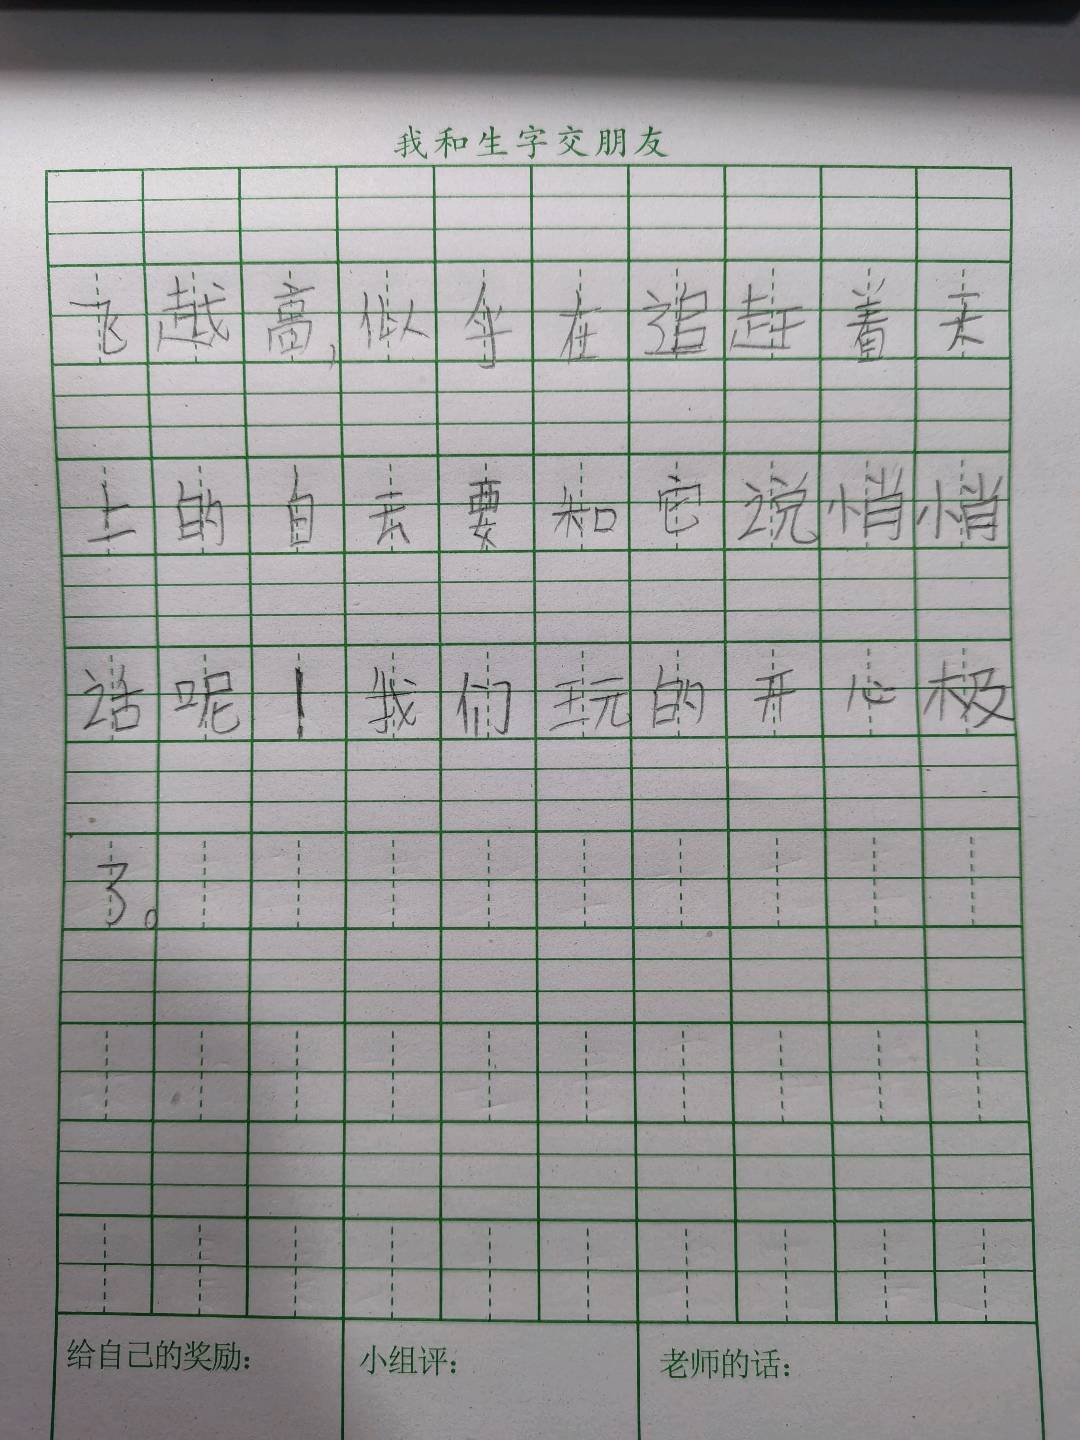 我和生字交朋友
飞越高,似乎在追赶着天
上的白云要和它说悄悄
话呢!我们玩的开心极
了。
给自己的奖励:
小组评:
老师的话: